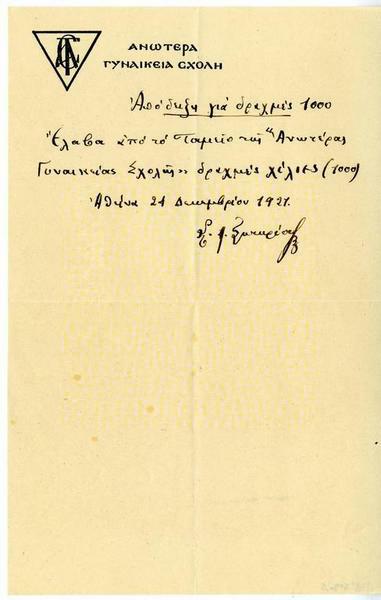 ΑΝΩΤΕΡΑ
ΓΥΝΑΙΚΕΙΑ ΣΧΟΛΗ
Ἀπόδειξη γιά δραχμές 1000
Ἔλαβα ἀπό τό Ταμεῖο τῆς "Ἀνωτέρας
Γυναικείας Σχολῆς" δραχμές χίλιες (1000)
Ἀθήνα 21 Δεκεμβρίου 1921.